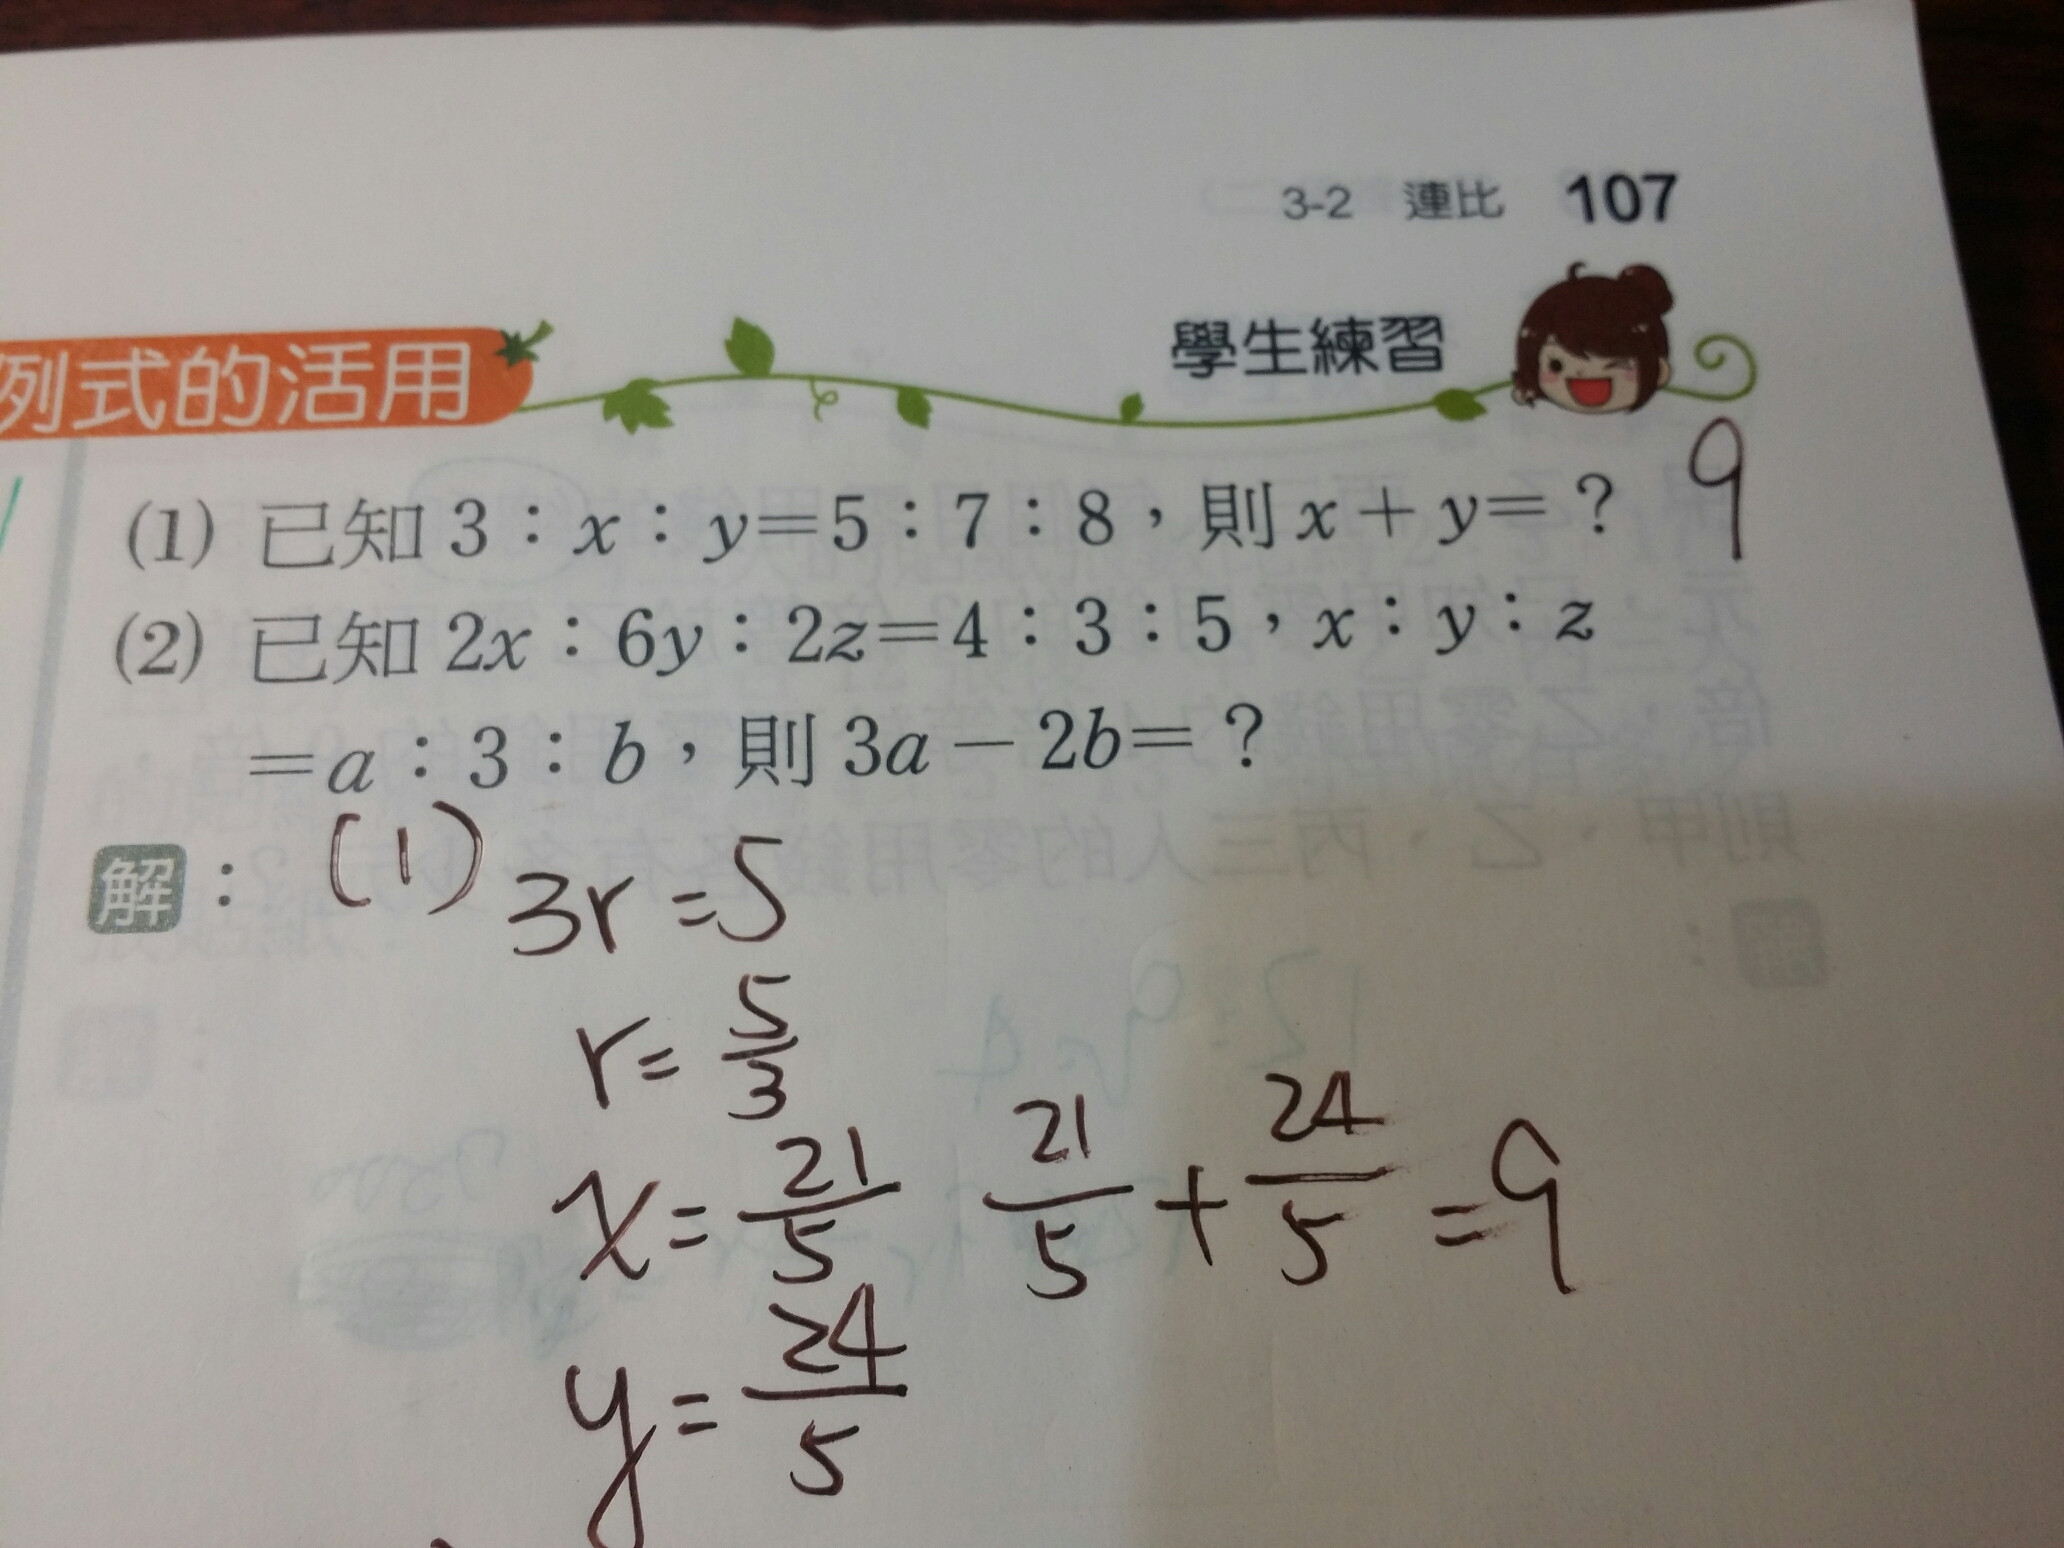 3-2 連比 107
例式的活用
學生練習
(1) 已知 3:x:y=5:7:8,則 x+y=? 9
(2) 已知 2x:6y:2z=4:3:5,x:y:z
=a:3:b,則 3a-2b=?
解:(1) 3r=5
r=5/3
x=21/5 21/5+24/5=9
y=24/5